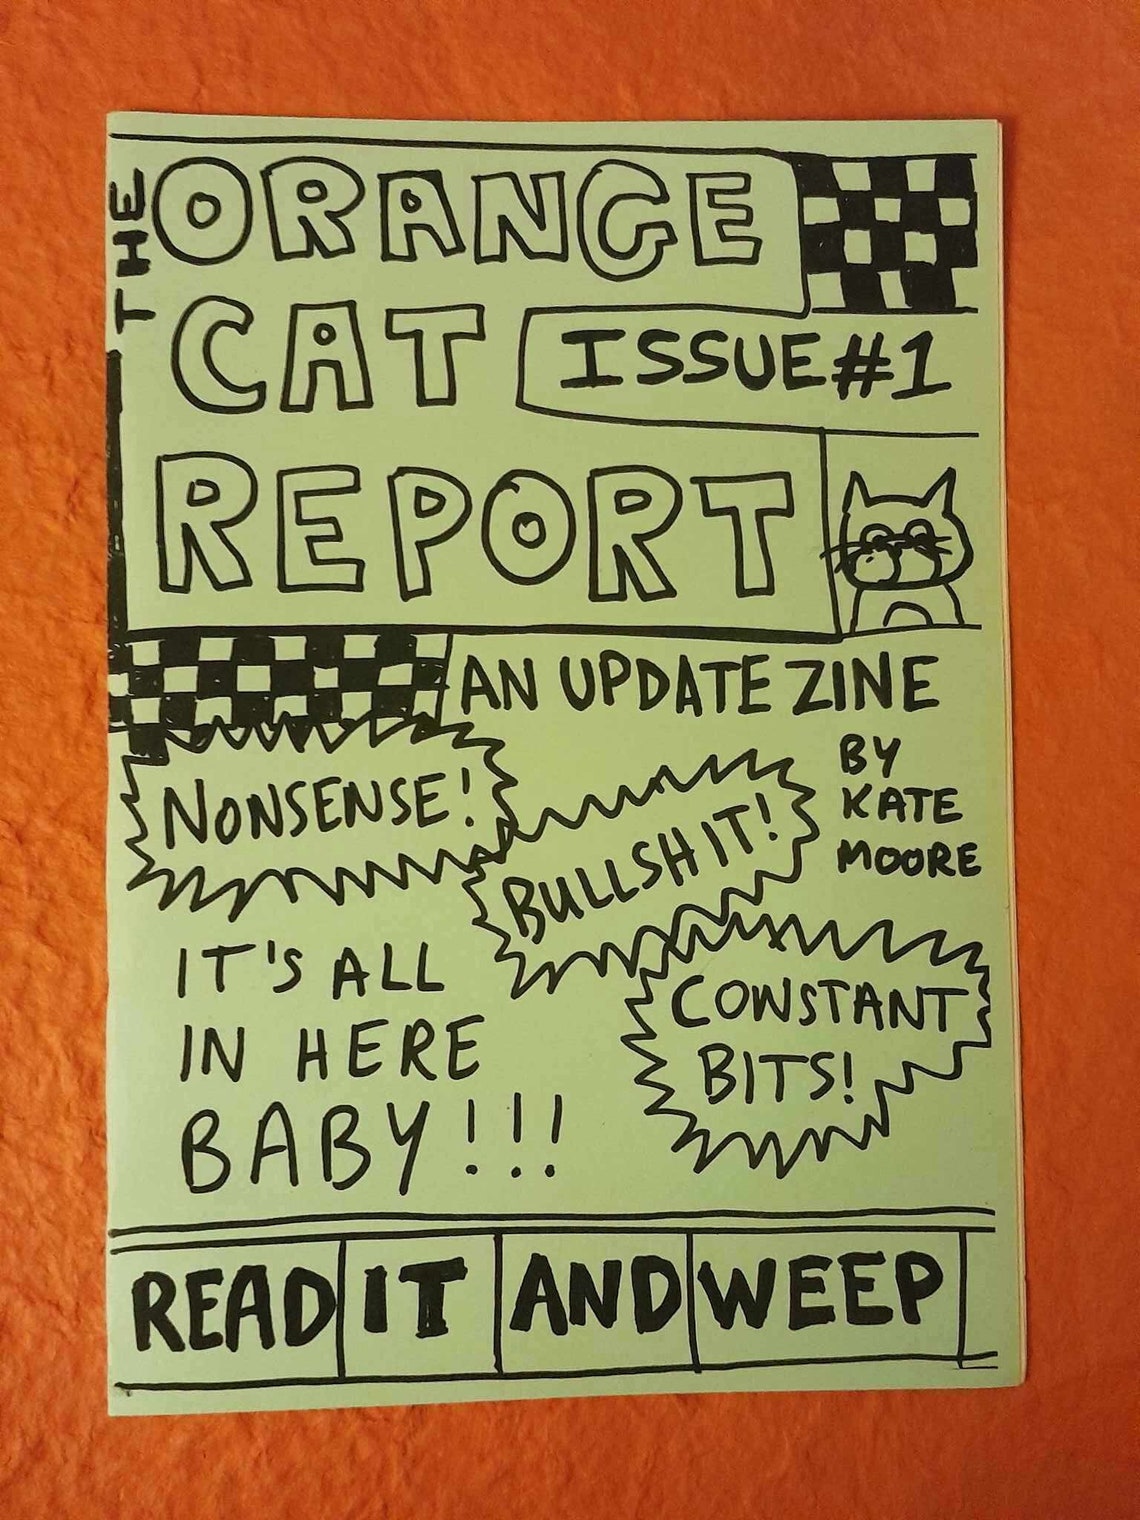 THE
ORANGE
CAT
ISSUE #1
REPORT
AN UPDATE ZINE
BY
KATE
MOORE
NONSENSE!
BULLSHIT!
CONSTANT
BITS!
IT'S ALL
IN HERE
BABY!!!
READ IT AND WEEP